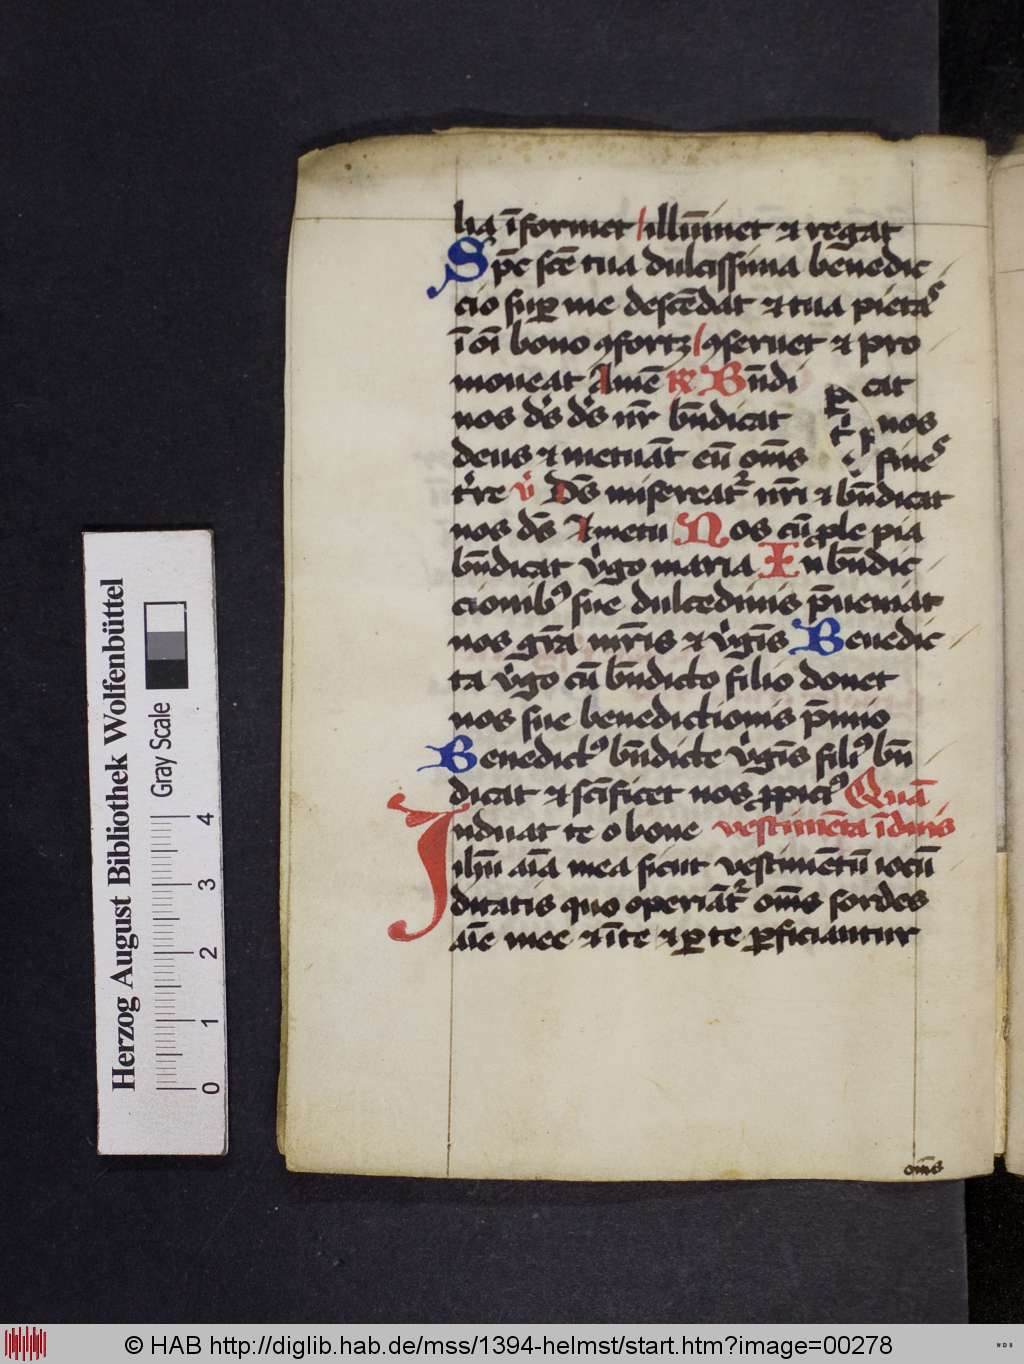 lia īformet illūinet ⁊ regat
Spē scē tua dulcissima bēnedic
cio suꝑ me descēdat ⁊ tua pietas
ī oī bono ꝯfortꝫ ꝯseruet ⁊ pro
moueat Amē Bn̄di cat
nos ds̄ ds̄ nr̄ bn̄dicat nos
deus ⁊ metuāt eū om̄s fines
tr̄re ds̄ misereatᷣ nr̄i ⁊ bn̄dicat
nos ds̄ A metu Nos cū ple pia
bn̄dicat v̓go maria In bn̄dic
cionibꝰ sue dulcedinis p̄ueniat
nos gr̄a mr̄is ⁊ v̓gīs Benedic
ta v̓go cū bn̄dicto filio donet
nos sue benedictionis p̄mio
Benedictꝰ bn̄dicte v̓gīs filiꝰ bn̄
dicat ⁊ scīficet nos ꝓpiciꝰ Quā
Induat te o bone vestimēta īdūis
ihū aīa mea sicut vestimētū iocū
ditatis quo operiātᷣ om̄s sordes
aīe mee ⁊ īte ⁊ ꝑ te ꝑficiantur
om̄s
Herzog August Bibliothek Wolfenbüttel
Gray Scale
0 1 2 3 4
© HAB http://diglib.hab.de/mss/1394-helmst/start.htm?image=00278